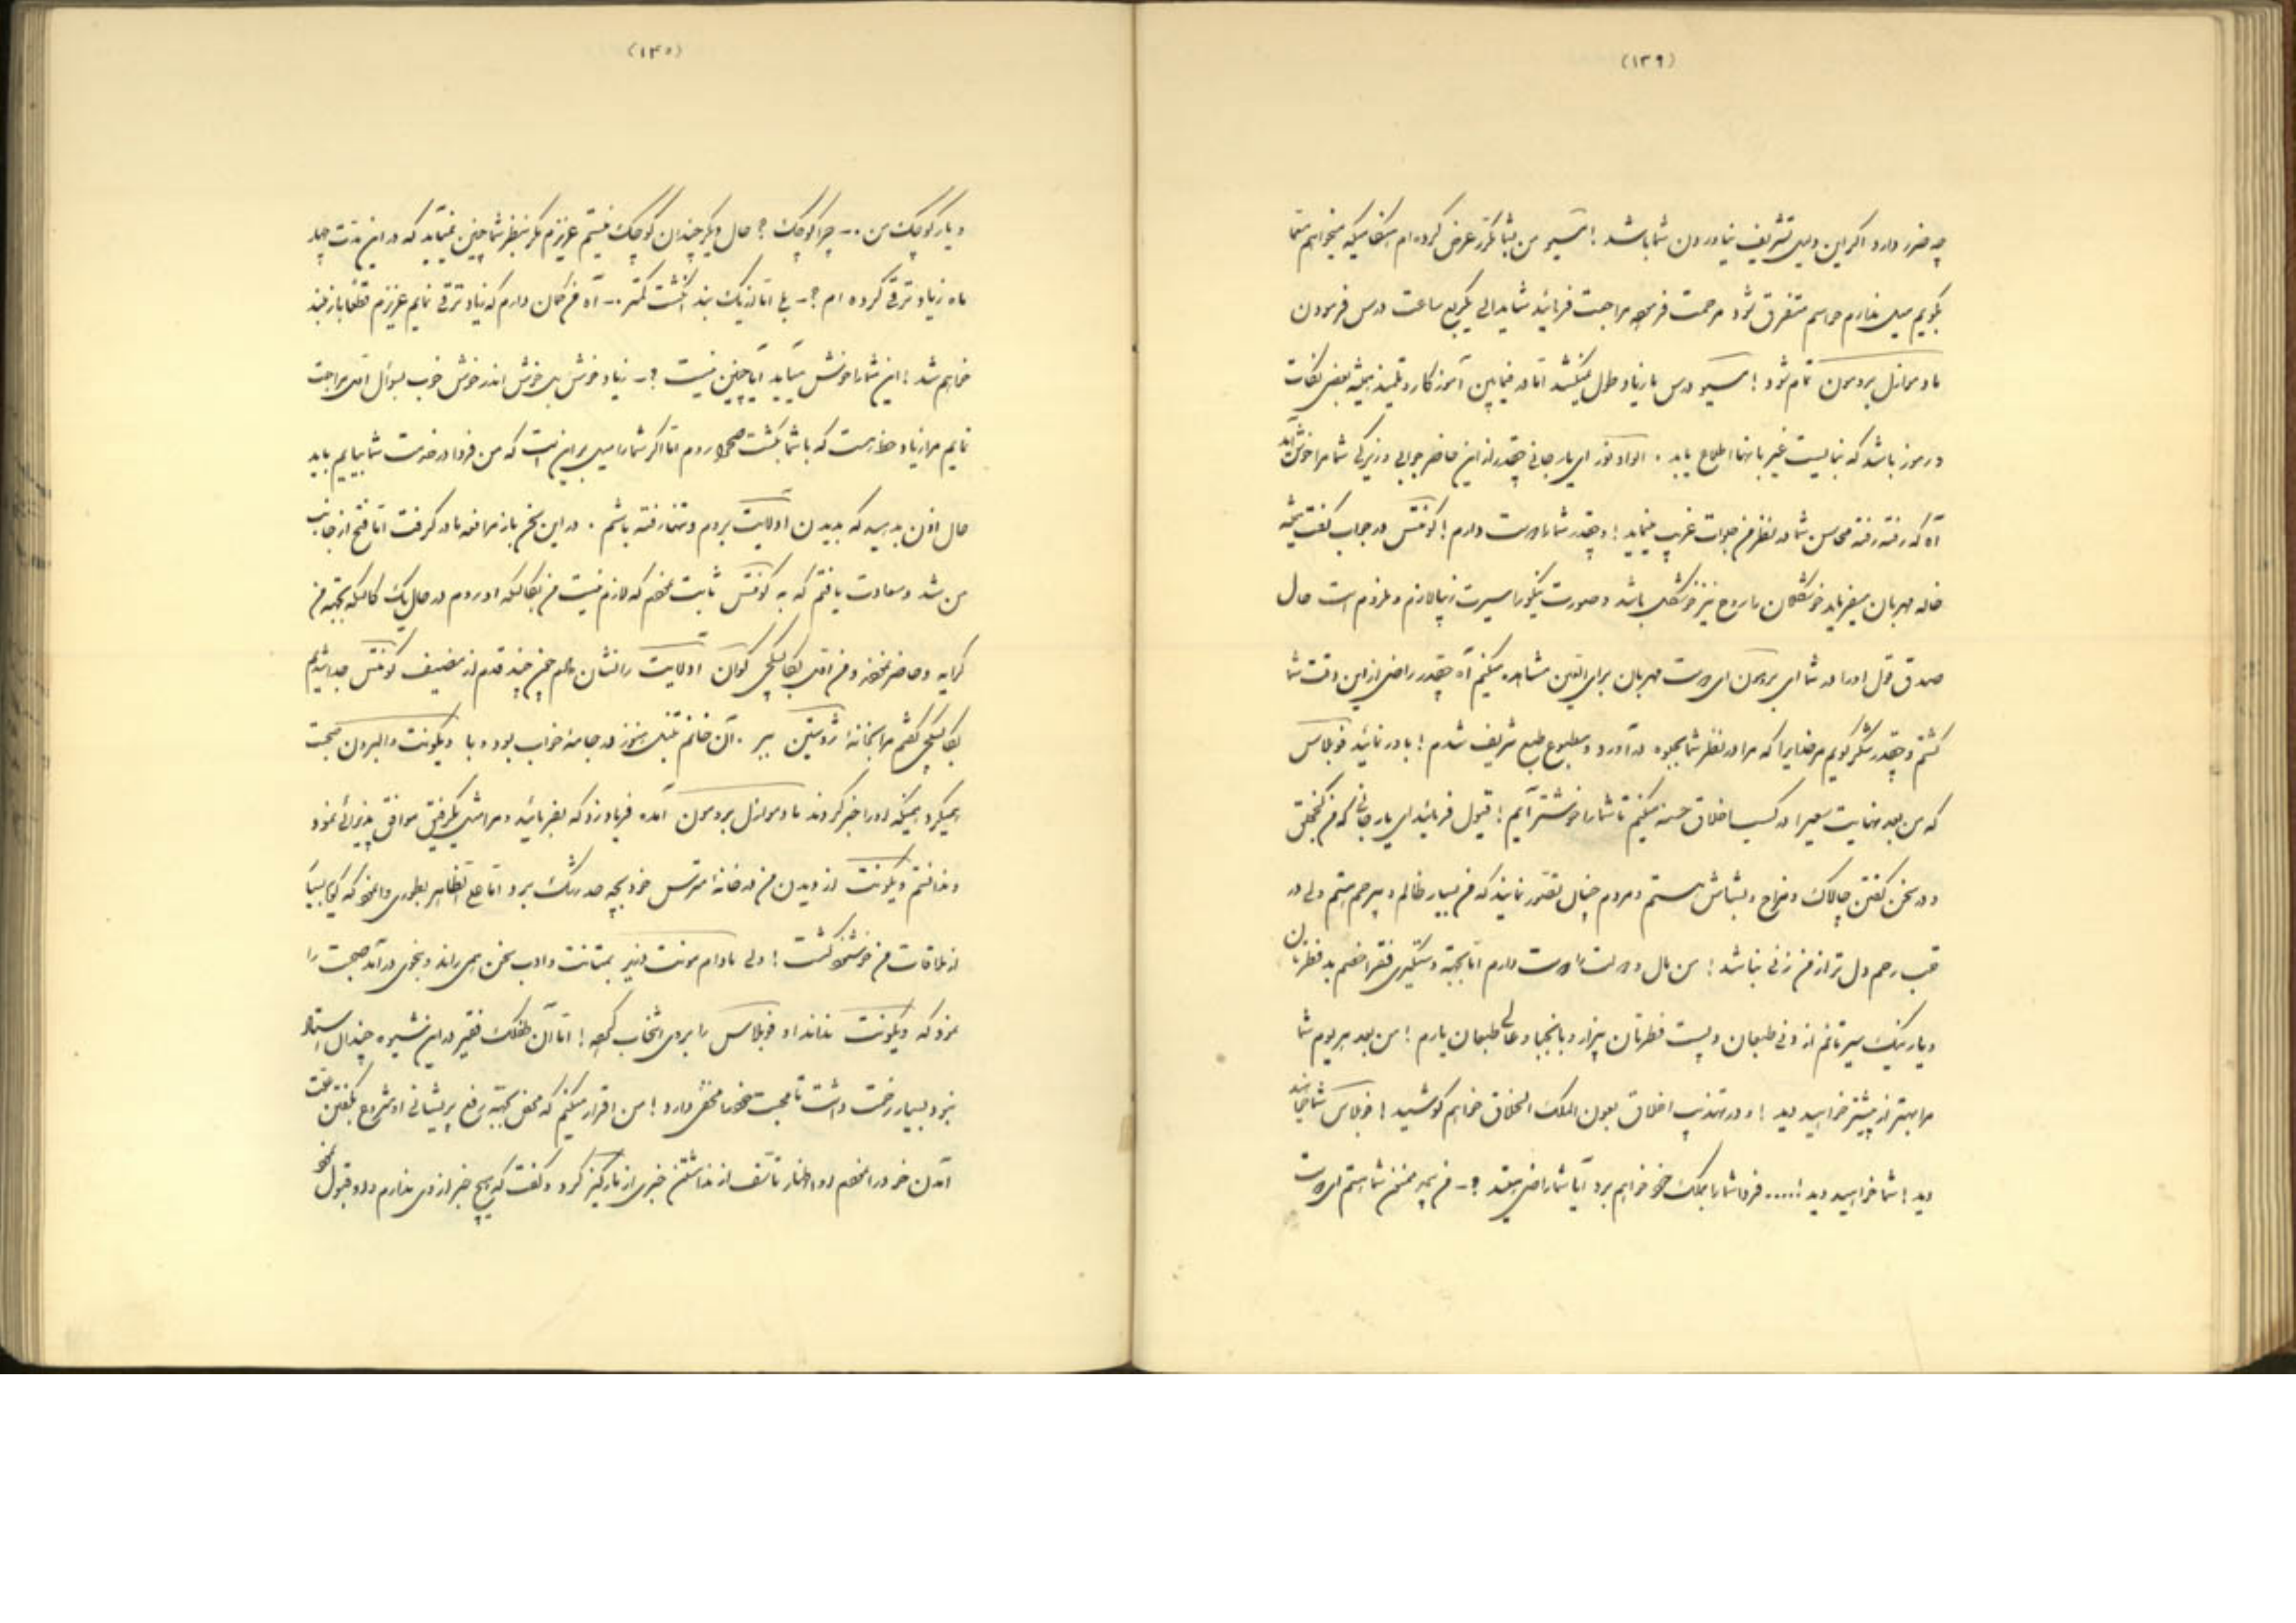 (۱۳۹)
چه ضرر دارد اگر این دلیل تشریف نیاوردن شما باشد ! مسیو من بشما مکرر عرض کرده ام هنگامیکه میخواهم سخنا
بگویم میل ندارم حواسم متفرق شود مرحمت فرموده مراجعت فرمائید شاید الی یکربع ساعت درس فرمودن
مادموازل برومون تمام شود ! مسیو درس ما زیاد طول نمیکشد اما در فیمابین آموزگار و تلمیذ همیشه بعضی نکات
و رموز باشد که نبایست غیر بآنها اطلاع یابد . الوادور ای یار جانی چقدر از این حاضر جوابی و زیرکی شما مرا خوش آید
آه که رفته رفته محاسن شما در نظر من جلوات غریب مینماید ! و چقدر شما را دوست دارم ! کونتس در جواب گفت همیشه
خاله مهربان میفرماید خوشگلان را روح نیز خوشگل باشد و صورت نیکو را سیرت زیبا لازم و ملزوم است حال
صدق قول او را در شما ای برومون ای دوست مهربان برای العین مشاهده میکنم آه چقدر راضی از این وقت شما
گشتم و چقدر شکر گویم مر خدایرا که مرا در نظر شما بجلوه در آورد و مطبوع طبع شریف شدم ! باور نمائید فوبلاس
که من بعد نهایت سعی را در کسب اخلاق حسنه میکنم تا شما را خوشتر آیم ! قبول فرمائید ای یار جانی که من گنجفلق
و در سخن گفتن چالاک و مزاح و بشاش هستم و مردم چنان تصور نمایند که من بسیار ظالم و بیرحم هستم ولی در
قلب رحم دل تر از من زنی نباشد ! من مال و دولت را دوست دارم اما بجهة دستگیری فقرا خصم بد فطرتان
و یار نیک سیرتانم از دنی طبعان و پست فطرتان بیزار و با نجبا و عالی طبعان یارم ! من بعد هر یوم شما
مرا بهتر از پیشتر خواهید دید ! و در تهذیب اخلاق بعون الملک الخلاق خواهم کوشید ! فوبلاس شما خواهید
دید ! شما خواهید دید ! ..... فردا شما را بملک خود خواهم برد آیا شما راضی هستید ؟ - من همه ممنون شما هستم ای دوست
(۱۴۰)
و یار کوچک من .- چرا کوچک ؟ حال دیگر چندان کوچک نیستم عزیزم مگر بنظر شما چنین نمیآید که در این مدت چهار
ماه زیاد ترقی کرده ام ؟ - بلی اما از یک بند انگشت کمتر .- آه من گمان دارم که زیاد ترقی نمایم عزیزم قطعا باز بلند
خواهم شد ! این شما را خوش میآید آیا چنین نیست ؟ - زیاد خوش بلی خوش اندر خوش خوب بسؤال اولی مراجعت
نمایم مرا زیاد حظ هست که با شما بگشت صحرا روم اما اگر شما را میل بر این است که من فردا در خدمت شما بیایم باید
حال اذن بدهید که بدیدن ادلایت بروم و تنها رفته باشم . در این سخن باز مرافعه مادر گرفت اما فتح از جانب
من شد و سعادت یافتم که به کونتس ثابت نمودم که لازم نیست من بکالسکه او روم در حال یک کالسکه بجهة من
کرایه و حاضر نموده و من اولا بکالسکچی کوان ادلایت را نشان دادم چون چند قدم از مضیف کونتس جدا شدیم
بکالسکچی گفتم مرا بخانه ژوستین ببر . آن خانم تنبل هنوز در جامه خواب بود و با ویکونت والبرون صحبت
همیکرد همینکه او را خبر کردند مادموازل برومون آمده فریاد زد که بفرمائید و مرا مثل یکرفیق موافق پذیرائی نمود
و ندانستم ویکونت از دیدن من در خانه مترس خود بچه حد رشک برد اما علی الظاهر بطوری وانمود که گویا بسیار
از ملاقات من خوشنود گشت ! ولی مادام مونت دزیر بمتانت و ادب سخن همی راند و بنحوی در آمد صحبت را
نمود که ویکونت نداند او فوبلاس را برای انتخاب کرده ! اما آن طفلک فقیر در این شیوه چندان استاد
نبود بسیار زحمت داشت تا محبت خود را مخفی دارد ! من اقرار میکنم که محض بجهة رفع پریشانی او شروع بگفتن علت
آمدن خود را نمودم او اظهار تأسف از نداشتن خبری از مارکیز کرد و گفت که هیچ خبر از وی ندارم و او قبول نمود